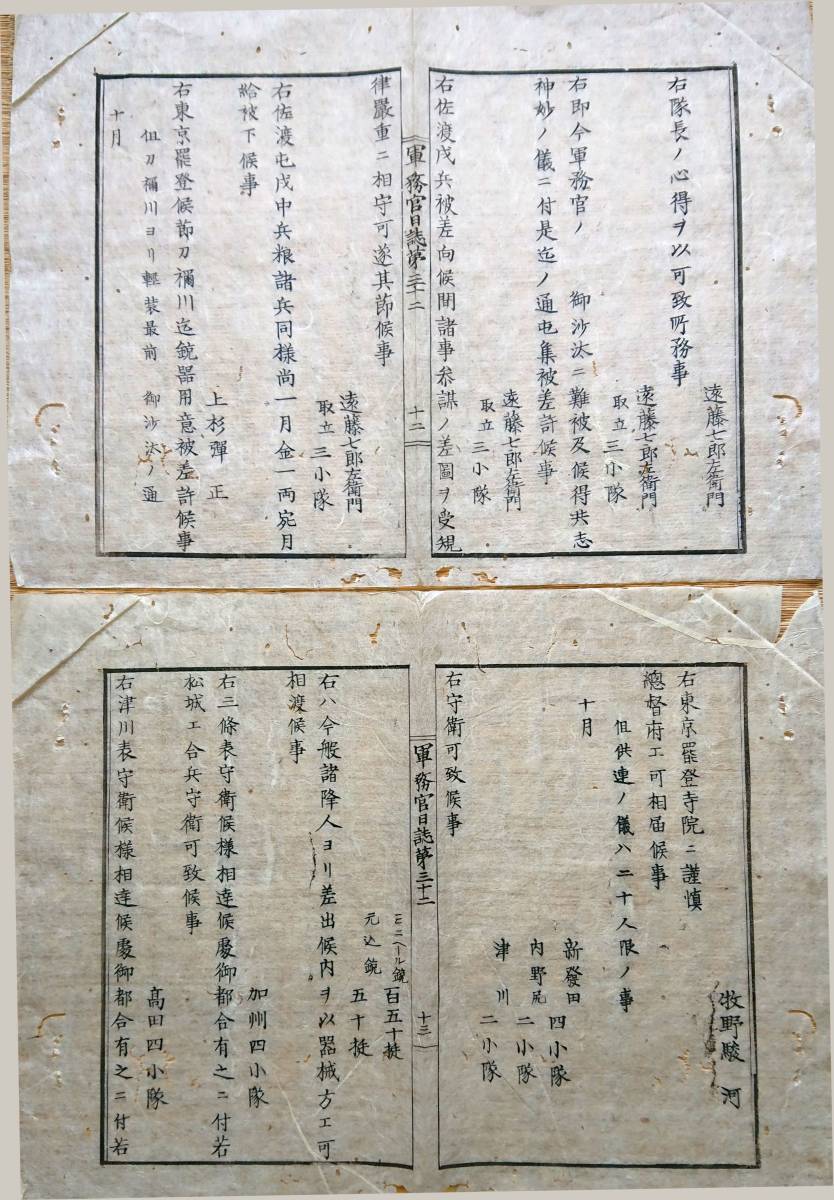 遠藤七郎左衛門
右隊長ノ心得ヲ以可致所務事
遠藤七郎左衛門
取立三小隊
右即今軍務官ノ 御沙汰ニ難被及候得共志
神妙ノ儀ニ付是迄ノ通屯集被差許候事
遠藤七郎左衛門
取立三小隊
右佐渡戍兵被差向候間諸事参謀ノ差圖ヲ受規
軍務官日誌第三十二
十二
律嚴重ニ相守可遂其節候事
遠藤七郎左衛門
取立三小隊
右佐渡屯戍中兵粮諸兵同様尚一月金一両宛月
給被下候事
上杉彈正
右東京罷登候節刀禰川迄銃器用意被差許候事
但刀禰川ヨリ輕装最前 御沙汰ノ通
十月
牧野駿河
右東京罷登寺院ニ謹慎
總督府エ可相届候事
但供連ノ儀ハ二十人限ノ事
十月
新發田四小隊
内野尻二小隊
津川二小隊
右守衛可致候事
軍務官日誌第三十二
十三
ミニヘール銃百五十挺
元込銃五十挺
右ハ今般諸降人ヨリ差出候内ヲ以器械方エ可
相渡候事
加州四小隊
右三條表守衛候様相達候處御都合有之ニ付若
松城エ合兵守衛可致候事
高田四小隊
右津川表守衛候様相達候處御都合有之ニ付若